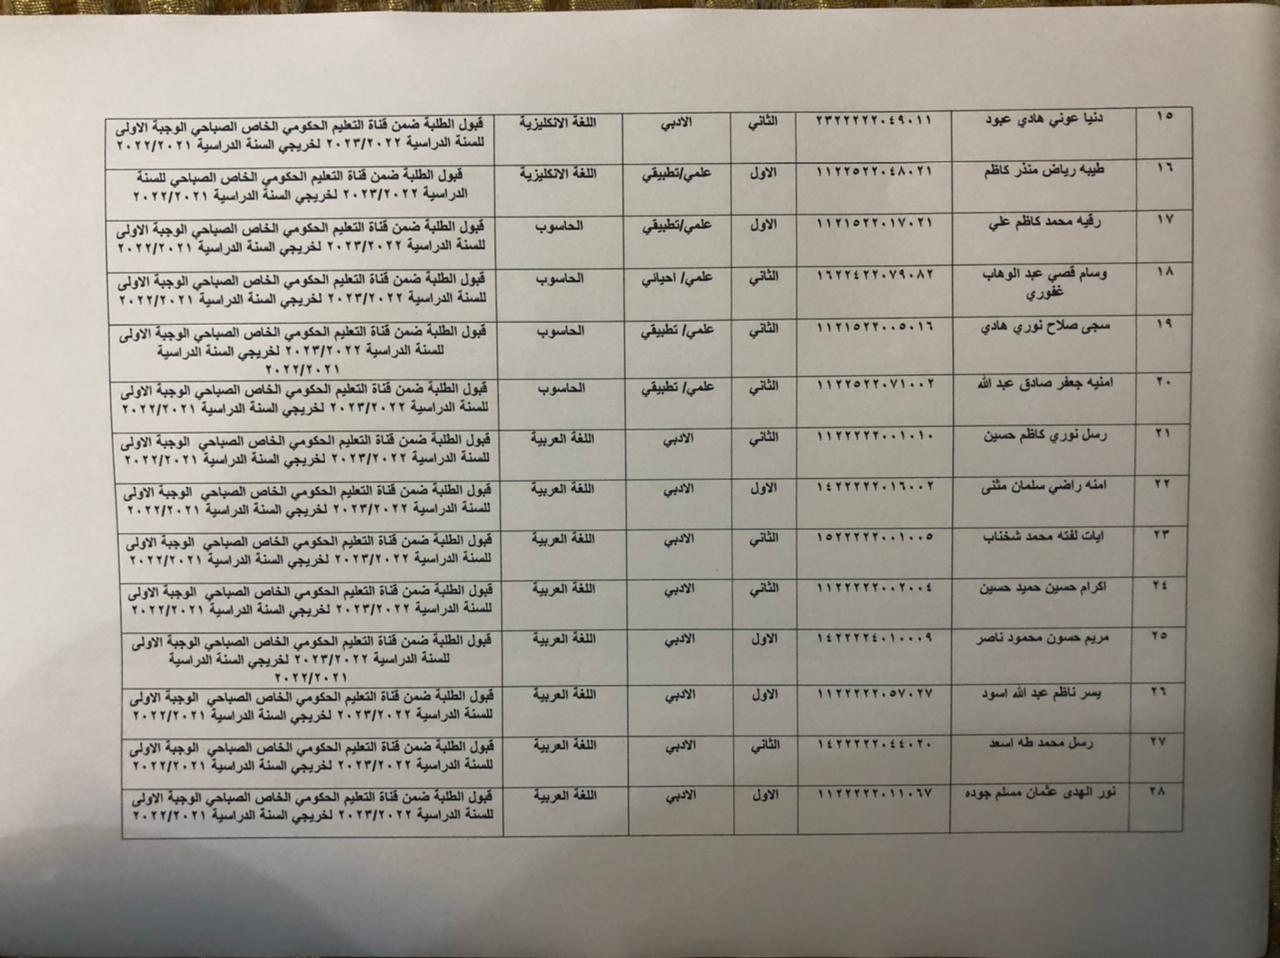 ١٥ دنيا عوني هادي عبود ٢٣٢٢٢٢٢٠٤٩٠١١ الثاني الادبي اللغة الانكليزية قبول الطلبة ضمن قناة التعليم الحكومي الخاص الصباحي الوجبة الاولى
للسنة الدراسية ٢٠٢٣/٢٠٢٢ لخريجي السنة الدراسية ٢٠٢٢/٢٠٢١
١٦ طيبه رياض منذر كاظم ١١٢٢٥٢٢٠٤٨٠٢١ الاول علمي/تطبيقي اللغة الانكليزية قبول الطلبة ضمن قناة التعليم الحكومي الخاص الصباحي للسنة
الدراسية ٢٠٢٣/٢٠٢٢ لخريجي السنة الدراسية ٢٠٢٢/٢٠٢١
١٧ رقيه محمد كاظم علي ١١٢١٥٢٢٠١٧٠٢١ الاول علمي/تطبيقي الحاسوب قبول الطلبة ضمن قناة التعليم الحكومي الخاص الصباحي الوجبة الاولى
للسنة الدراسية ٢٠٢٣/٢٠٢٢ لخريجي السنة الدراسية ٢٠٢٢/٢٠٢١
١٨ وسام قصي عبد الوهاب ١٦٢٢٤٢٢٠٧٩٠٨٢ الثاني علمي/ احيائي الحاسوب قبول الطلبة ضمن قناة التعليم الحكومي الخاص الصباحي الوجبة الاولى
غفوري للسنة الدراسية ٢٠٢٣/٢٠٢٢ لخريجي السنة الدراسية ٢٠٢٢/٢٠٢١
١٩ سجى صلاح نوري هادي ١١٢١٥٢٢٠٠٥٠١٦ الثاني علمي/ تطبيقي الحاسوب قبول الطلبة ضمن قناة التعليم الحكومي الخاص الصباحي الوجبة الاولى
للسنة الدراسية ٢٠٢٣/٢٠٢٢ لخريجي السنة الدراسية
٢٠٢٢/٢٠٢١
٢٠ امنيه جعفر صادق عبد الله ١١٢٢٥٢٢٠٧١٠٠٢ الثاني علمي/ تطبيقي الحاسوب قبول الطلبة ضمن قناة التعليم الحكومي الخاص الصباحي الوجبة الاولى
للسنة الدراسية ٢٠٢٣/٢٠٢٢ لخريجي السنة الدراسية ٢٠٢٢/٢٠٢١
٢١ رسل نوري كاظم حسين ١١٢٢٢٢٢٠٠١٠١٠ الثاني الادبي اللغة العربية قبول الطلبة ضمن قناة التعليم الحكومي الخاص الصباحي الوجبة الاولى
للسنة الدراسية ٢٠٢٣/٢٠٢٢ لخريجي السنة الدراسية ٢٠٢٢/٢٠٢١
٢٢ امنه راضي سلمان مثنى ١٤٢٢٢٢٢٠١٦٠٠٢ الاول الادبي اللغة العربية قبول الطلبة ضمن قناة التعليم الحكومي الخاص الصباحي الوجبة الاولى
للسنة الدراسية ٢٠٢٣/٢٠٢٢ لخريجي السنة الدراسية ٢٠٢٢/٢٠٢١
٢٣ ايات لفته محمد شخناب ١٥٢٢٢٢٢٠٠١٠٠٥ الثاني الادبي اللغة العربية قبول الطلبة ضمن قناة التعليم الحكومي الخاص الصباحي الوجبة الاولى
للسنة الدراسية ٢٠٢٣/٢٠٢٢ لخريجي السنة الدراسية ٢٠٢٢/٢٠٢١
٢٤ اكرام حسين حميد حسين ١١٢٢٢٢٢٠٠٢٠٠٤ الثاني الادبي اللغة العربية قبول الطلبة ضمن قناة التعليم الحكومي الخاص الصباحي الوجبة الاولى
للسنة الدراسية ٢٠٢٣/٢٠٢٢ لخريجي السنة الدراسية ٢٠٢٢/٢٠٢١
٢٥ مريم حسون محمود ناصر ١٤٢٢٢٢٤٠١٠٠٠٩ الاول الادبي اللغة العربية قبول الطلبة ضمن قناة التعليم الحكومي الخاص الصباحي الوجبة الاولى
للسنة الدراسية ٢٠٢٣/٢٠٢٢ لخريجي السنة الدراسية
٢٠٢٢/٢٠٢١
٢٦ يسر ناظم عبد الله اسود ١١٢٢٢٢٢٠٥٧٠٢٧ الاول الادبي اللغة العربية قبول الطلبة ضمن قناة التعليم الحكومي الخاص الصباحي الوجبة الاولى
للسنة الدراسية ٢٠٢٣/٢٠٢٢ لخريجي السنة الدراسية ٢٠٢٢/٢٠٢١
٢٧ رسل محمد طه اسعد ١٤٢٢٢٢٢٠٤٤٠٢٠ الثاني الادبي اللغة العربية قبول الطلبة ضمن قناة التعليم الحكومي الخاص الصباحي الوجبة الاولى
للسنة الدراسية ٢٠٢٣/٢٠٢٢ لخريجي السنة الدراسية ٢٠٢٢/٢٠٢١
٢٨ نور الهدى عثمان مسلم جوده ١١٢٢٢٢٢٠١١٠٦٧ الاول الادبي اللغة العربية قبول الطلبة ضمن قناة التعليم الحكومي الخاص الصباحي الوجبة الاولى
للسنة الدراسية ٢٠٢٣/٢٠٢٢ لخريجي السنة الدراسية ٢٠٢٢/٢٠٢١